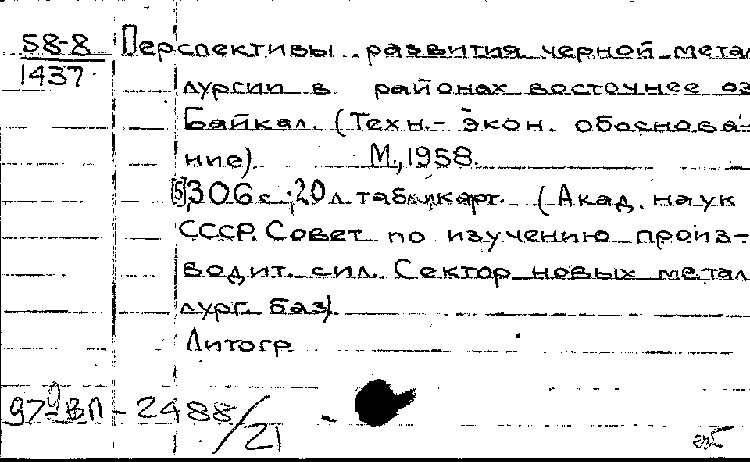 58-8 Перспективы развития черной метал
1437 лургии в районах восточнее оз
Байкал. (Техн.- экон. обоснова-
ние). М., 1958.
306 с.; 20 л. табл. и карт. (Акад. наук
СССР. Совет по изучению произ-
водит. сил. Сектор новых метал
лург. баз).
Литогр.
2488/21